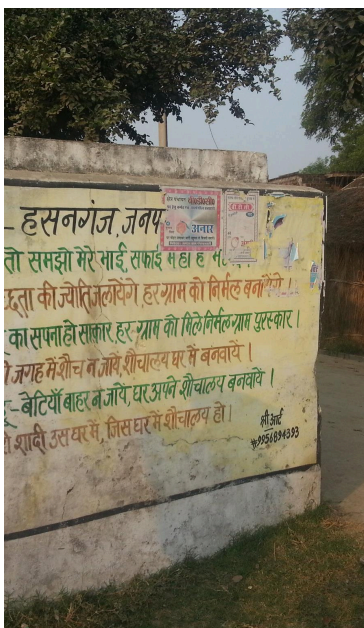 - हसनगंज, जनप
अनार
तो समझो मेरे भाई, सफाई में ही है
की ज्योति जलायेंगे, हर ग्राम को निर्मल बनायेंगे ।
का सपना हो साकार, हर ग्राम को मिले निर्मल ग्राम पुरस्कार ।
जगह में शौच न जायें, शौचालय घर में बनवायें ।
- बेटियाँ बाहर न जायें, घर अपने शौचालय बनवायें ।
शादी उस घर में, जिस घर में शौचालय हो ।
श्री आर्ट
9956894393